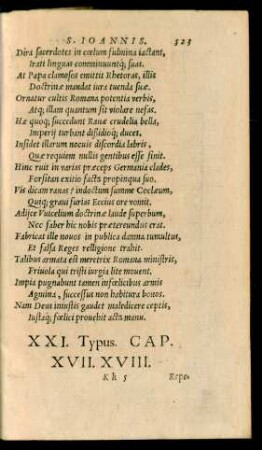 S. IOANNIS. 525
Dira sacerdotes in cœlum fulmina iactant,
Irati linguas comminuuntq́; suas.
At Papa clamosos emittit Rhetoras, illis
Doctrinæ mandat iura tuenda suæ.
Ornatur cultis Romana potentia verbis,
Atq́; illam quantum sit violare nefas.
Hæ quoq́; succedunt Ranæ crudelia bella,
Imperij turbant dißidioq́; duces.
Insidet illarum nocuis discordia labris,
Quæ requiem nullis gentibus esse sinit.
Hinc ruit in varias præceps Germania clades,
Forsitan exitio facta propinqua suo.
Vis dicam ranas? indoctum summe Coclæum,
Quiq́; graui furias Eccius ore vomit.
Adijce Vuicelium doctrinæ laude superbum,
Nec faber hic nobis prætereundus erat.
Fabricat ille nouos in publica damna tumultus,
Et falsa Reges relligione trahit.
Talibus armata est meretrix Romana ministris,
Friuola qui tristi iurgia lite mouent.
Impia pugnabunt tamen infœlicibus armis
Agmina, successus non habitura bonos.
Nam Deus iniustis gaudet maledicere ceptis,
Iustaq́; fœlici prouehit acta manu.
XXI. Typus. CAP.
XVII. XVIII.
Kk 5 Repe-